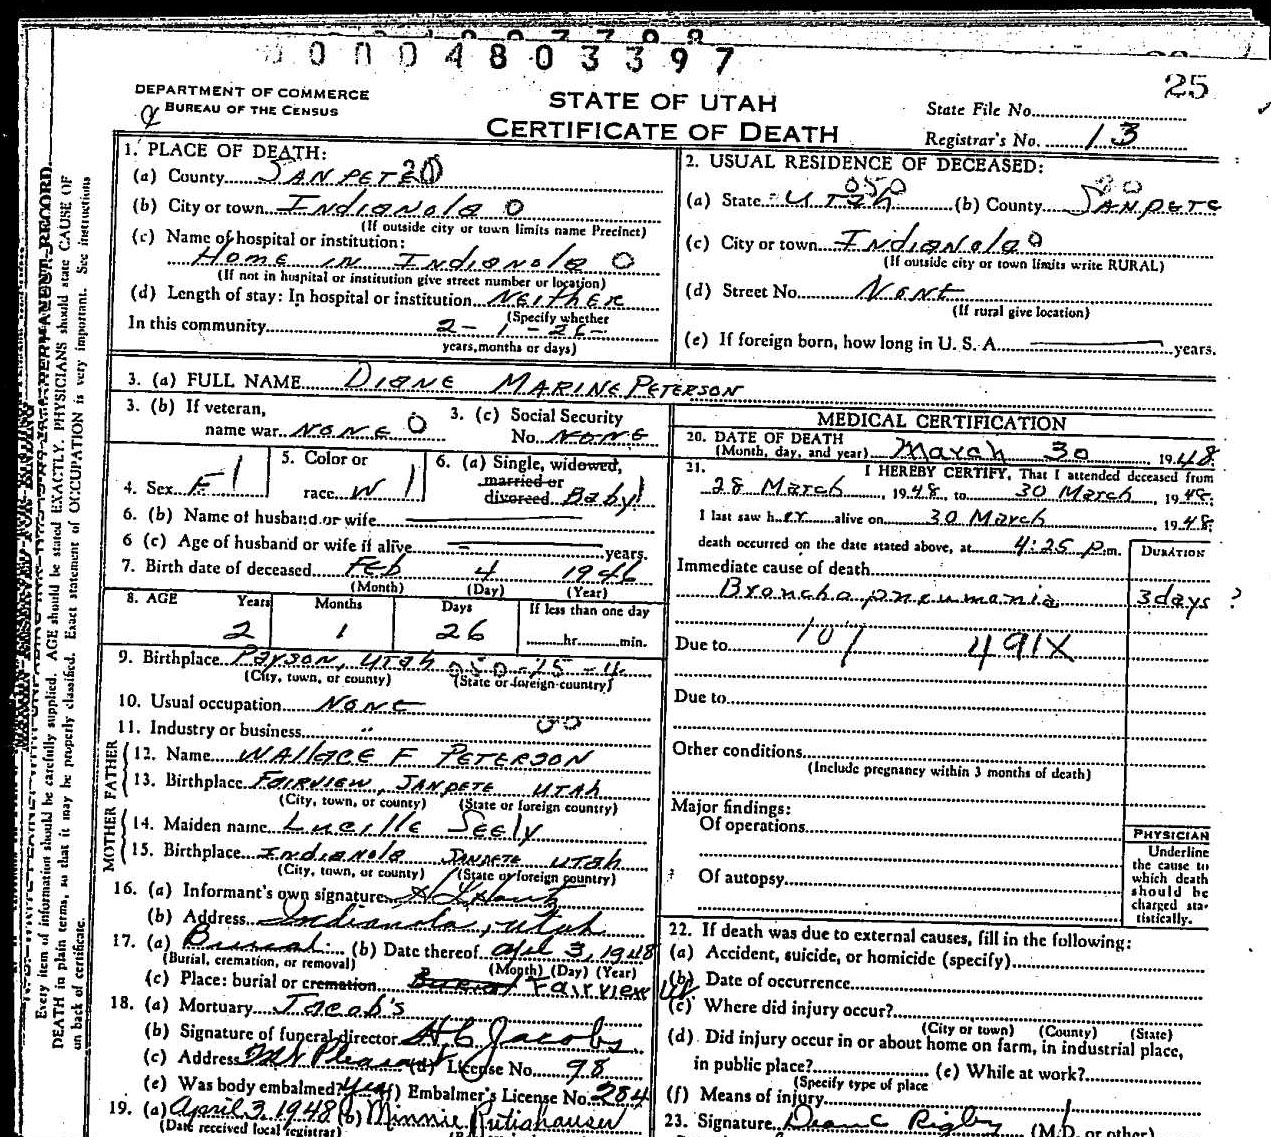 0004803397
25
DEPARTMENT OF COMMERCE
BUREAU OF THE CENSUS
STATE OF UTAH
CERTIFICATE OF DEATH
State File No.
Registrar's No. 13
1. PLACE OF DEATH:
(a) County SANPETE 20
(b) City or town Indianola 0
(If outside city or town limits name Precinct)
(c) Name of hospital or institution:
Home in Indianola 0
(If not in hospital or institution give street number or location)
(d) Length of stay: In hospital or institution NEITHER
(Specify whether
In this community 2-1-26-
years, months or days)
2. USUAL RESIDENCE OF DECEASED:
050
(a) State Utah (b) County SANPETE
(c) City or town Indianola 0
(If outside city or town limits write RURAL)
(d) Street No. None
(If rural give location)
(e) If foreign born, how long in U. S. A. years.
3. (a) FULL NAME DIANE MARINE PETERSON
3. (b) If veteran,
name war NONE 0
3. (c) Social Security
No. NONE
4. Sex F 1
5. Color or
race W 1
6. (a) Single, widowed,
married or
divorced Baby 1
6. (b) Name of husband or wife
6 (c) Age of husband or wife if alive years.
7. Birth date of deceased Feb 4 1946
(Month) (Day) (Year)
8. AGE Years Months Days If less than one day
2 1 26 hr. min.
9. Birthplace Payson, Utah 050-25-4
(City, town, or county) (State or foreign country)
10. Usual occupation None
11. Industry or business "
12. Name WALLACE F PETERSON
FATHER
13. Birthplace FAIRVIEW, SANPETE UTAH
(City, town, or county) (State or foreign country)
14. Maiden name Lucille Seely
MOTHER
15. Birthplace Indianola SANPETE UTAH
(City, town, or county) (State or foreign country)
16. (a) Informant's own signature
(b) Address Indianola, Utah
17. (a) Burial (b) Date thereof April 3, 1948
(Burial, cremation, or removal) (Month) (Day) (Year)
(c) Place: burial or cremation Burial Fairview Ut
18. (a) Mortuary Jacob's
(b) Signature of funeral director H C Jacobs
(c) Address Mt Pleasant (d) License No. 98
(e) Was body embalmed? yes (f) Embalmer's License No. 284
19. (a) April 3, 1948 (b) Minnie Rutishauser
(Date received local registrar)
MEDICAL CERTIFICATION
20. DATE OF DEATH
(Month, day, and year) March 30 1948
21. I HEREBY CERTIFY, That I attended deceased from
28 March, 1948, to 30 March, 1948.
I last saw her alive on 30 March, 1948
death occurred on the date stated above, at 4:25 p.m.
DURATION
Immediate cause of death
Bronchopneumonia 3 days ?
107 491X
Due to
Due to
Other conditions
(Include pregnancy within 3 months of death)
Major findings:
Of operations
Of autopsy
PHYSICIAN
Underline
the cause to
which death
should be
charged sta-
tistically.
22. If death was due to external causes, fill in the following:
(a) Accident, suicide, or homicide (specify)
(b) Date of occurrence
(c) Where did injury occur?
(City or town) (County) (State)
(d) Did injury occur in or about home on farm, in industrial place,
in public place? (e) While at work?
(Specify type of place
(f) Means of injury
23. Signature Dean C Rigby (M.D. or other)
Every item of information should be carefully supplied. AGE should be stated EXACTLY. PHYSICIANS should state CAUSE OF
DEATH in plain terms, so that it may be properly classified. Exact statement of OCCUPATION is very important. See instructions
on back of certificate.